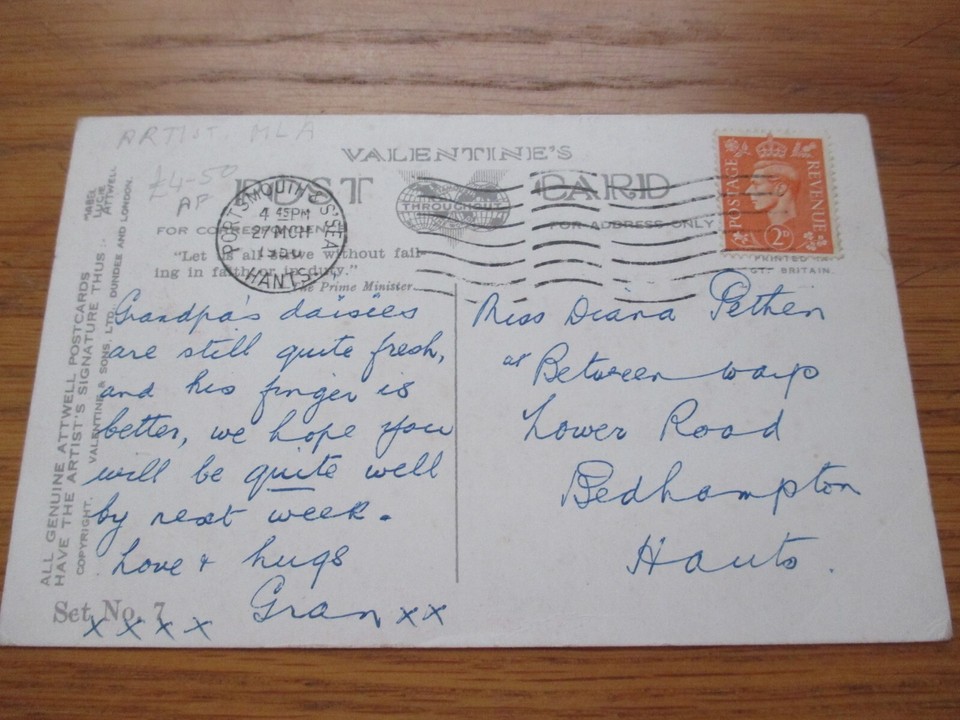 ARTIST MLA
£4-50
AP
VALENTINE'S
POST CARD
THROUGHOUT
FOR CORRESPONDENCE
FOR ADDRESS ONLY
"Let us all above without fall-
ing in faith or in duty."
The Prime Minister.
PORTSMOUTH & S'SEA
4 45 PM
27 MCH
HANTS
POSTAGE REVENUE
2D
PRINTED IN
GT. BRITAIN.
Grandpa's daisies
are still quite fresh,
and his finger is
better, we hope you
will be quite well
by next week.
Love & hugs
Gran xx
x x x x
Miss Diana
at Between ways
Lower Road
Bedhampton
Hants.
ALL GENUINE ATTWELL POSTCARDS
HAVE THE ARTIST'S SIGNATURE THUS :-
"MABEL
LUCIE
ATTWELL
COPYRIGHT. VALENTINE & SONS, LTD. DUNDEE AND LONDON.
Set No. 7